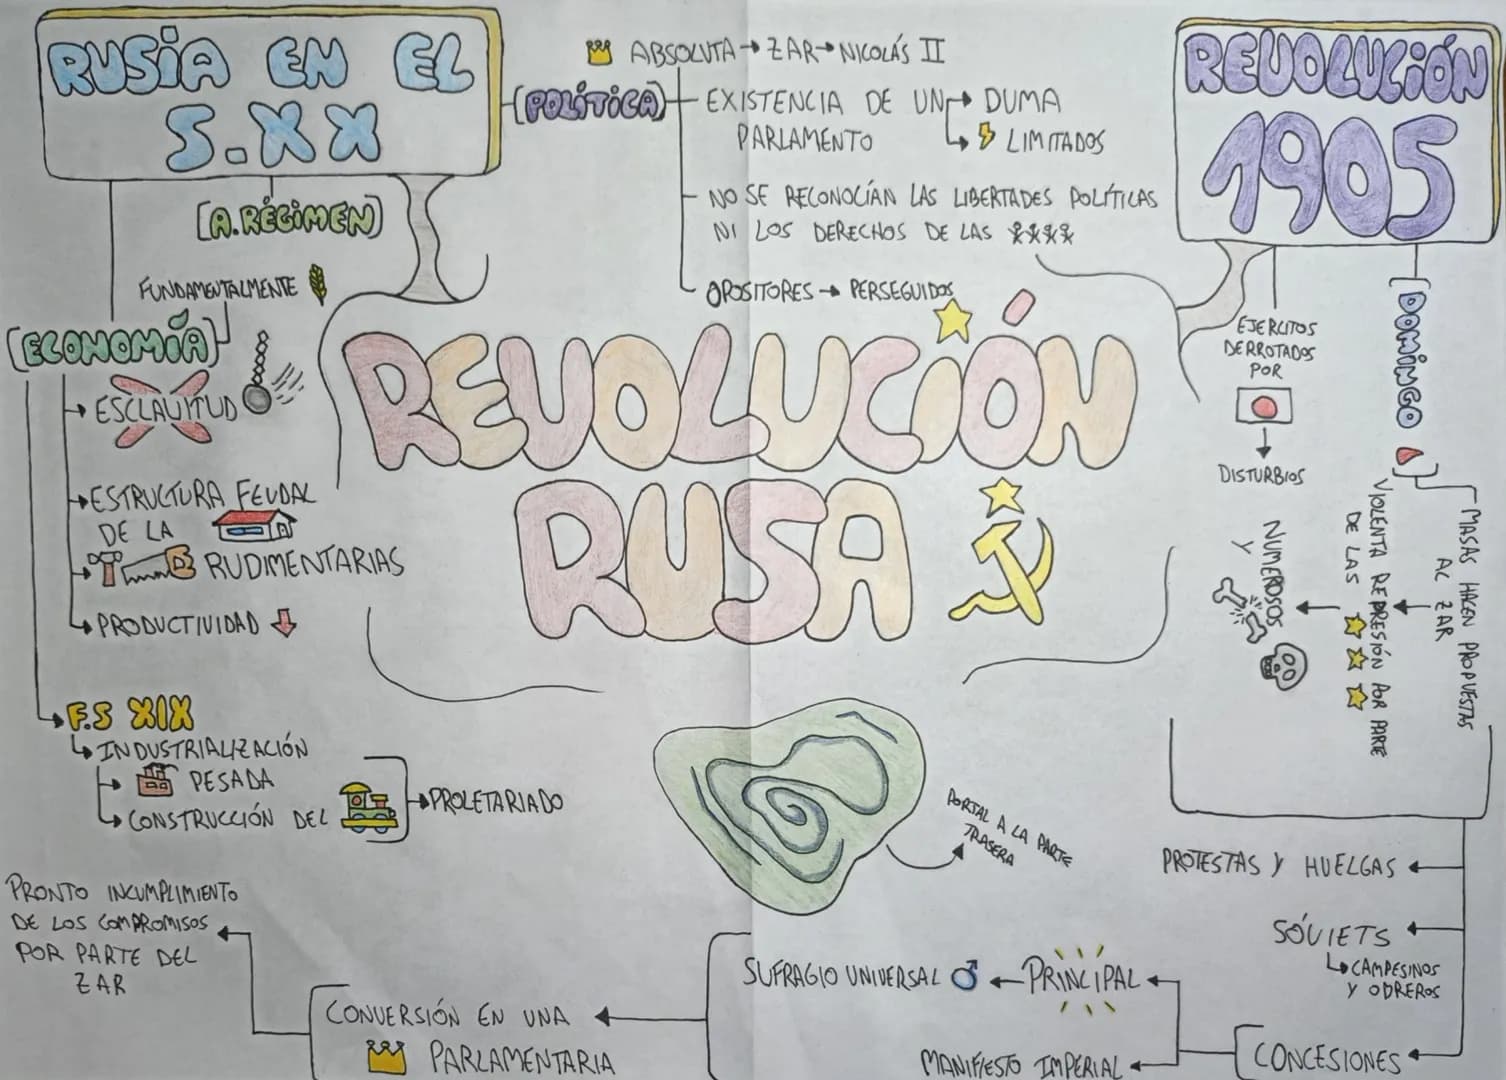 RUSIA EN EL
S.XX
[A.RÉGIMEN]
FUNDAMENTALMENTE
[ECONOMÍA]
ESCLAVITUD
ESTRUCTURA FEUDAL
DE LA
RUDIMENTARIAS
PRODUCTIVIDAD
F.S XIX
INDUSTRIALIZACIÓN
PESADA
CONSTRUCCIÓN DEL
PROLETARIADO
[POLÍTICA]
ABSOLUTA → ZAR → NICOLÁS II
EXISTENCIA DE UN → DUMA
PARLAMENTO → LIMITADOS
NO SE RECONOCÍAN LAS LIBERTADES POLÍTICAS
NI LOS DERECHOS DE LAS
OPOSITORES → PERSEGUIDOS
REVOLUCIÓN
RUSA
REVOLUCIÓN
1905
EJERCITOS
DERROTADOS
POR
DISTURBIOS
[DOMINGO]
MASAS HACEN PROPUESTAS
AL ZAR
VIOLENTA REPRESIÓN POR PARTE
DE LAS
NUMEROSOS
Y
PORTAL A LA PARTE
TRASERA
PROTESTAS Y HUELGAS
SÓVIETS
CAMPESINOS
Y OBREROS
CONCESIONES
PRINCIPAL
SUFRAGIO UNIVERSAL
MANIFIESTO IMPERIAL
CONVERSIÓN EN UNA
PARLAMENTARIA
PRONTO INCUMPLIMIENTO
DE LOS COMPROMISOS
POR PARTE DEL
ZAR